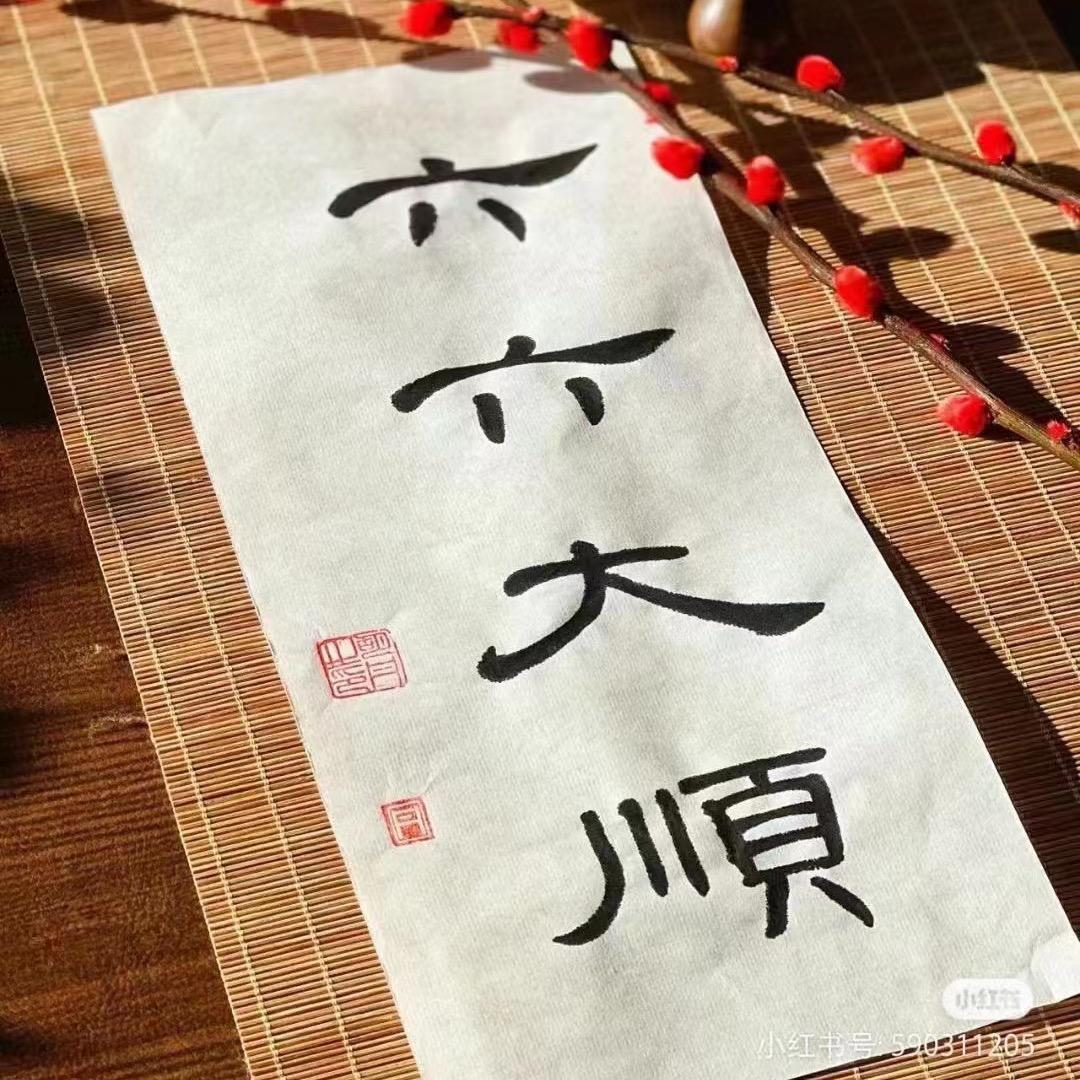 六六大順
小红书
小红书号: 590311205